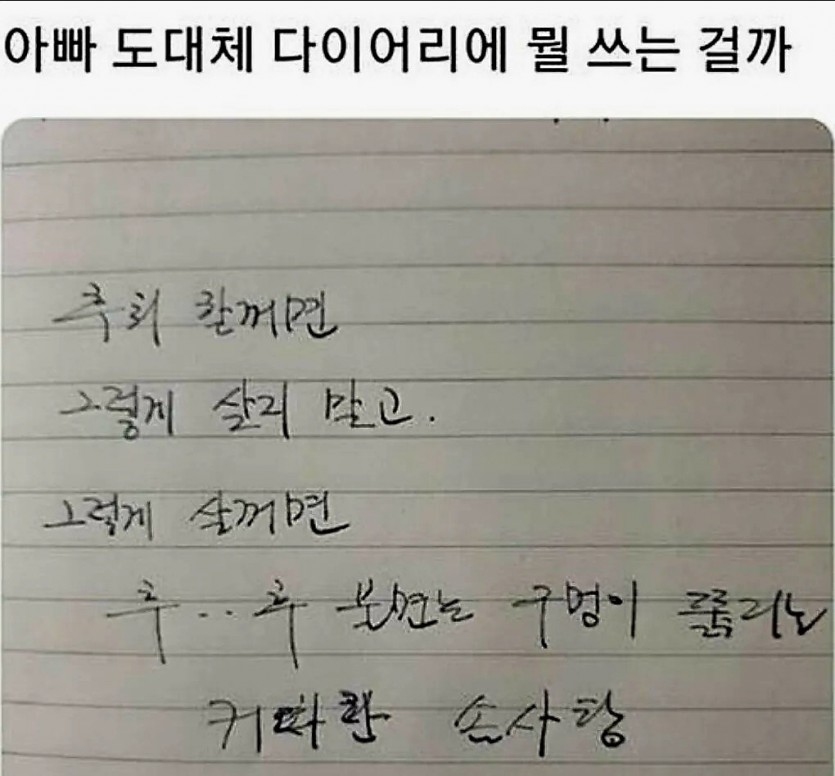 아빠 도대체 다이어리에 뭘 쓰는 걸까
후회 할꺼면
그렇게 살지 말고.
그렇게 살꺼면
후.. 후 불면는 구멍이 뚫리는
커다란 솜사탕